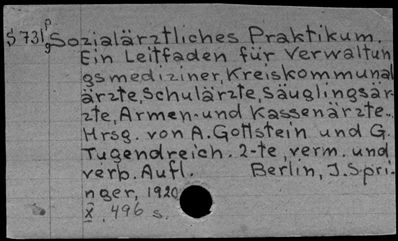 § 731 Sozialärztliches Praktikum.
Ein Leitfaden für Verwaltun
gsmediziner, Kreiskommunal
ärzte, Schulärzte, Säuglingsär-
zte, Armen- und Kassenärzte..
Hrsg. von A. Gottstein und G.
Tugendreich. 2-te, verm. und
verb. Aufl. Berlin, J. Spri-
nger, 1920
X, 496 s.